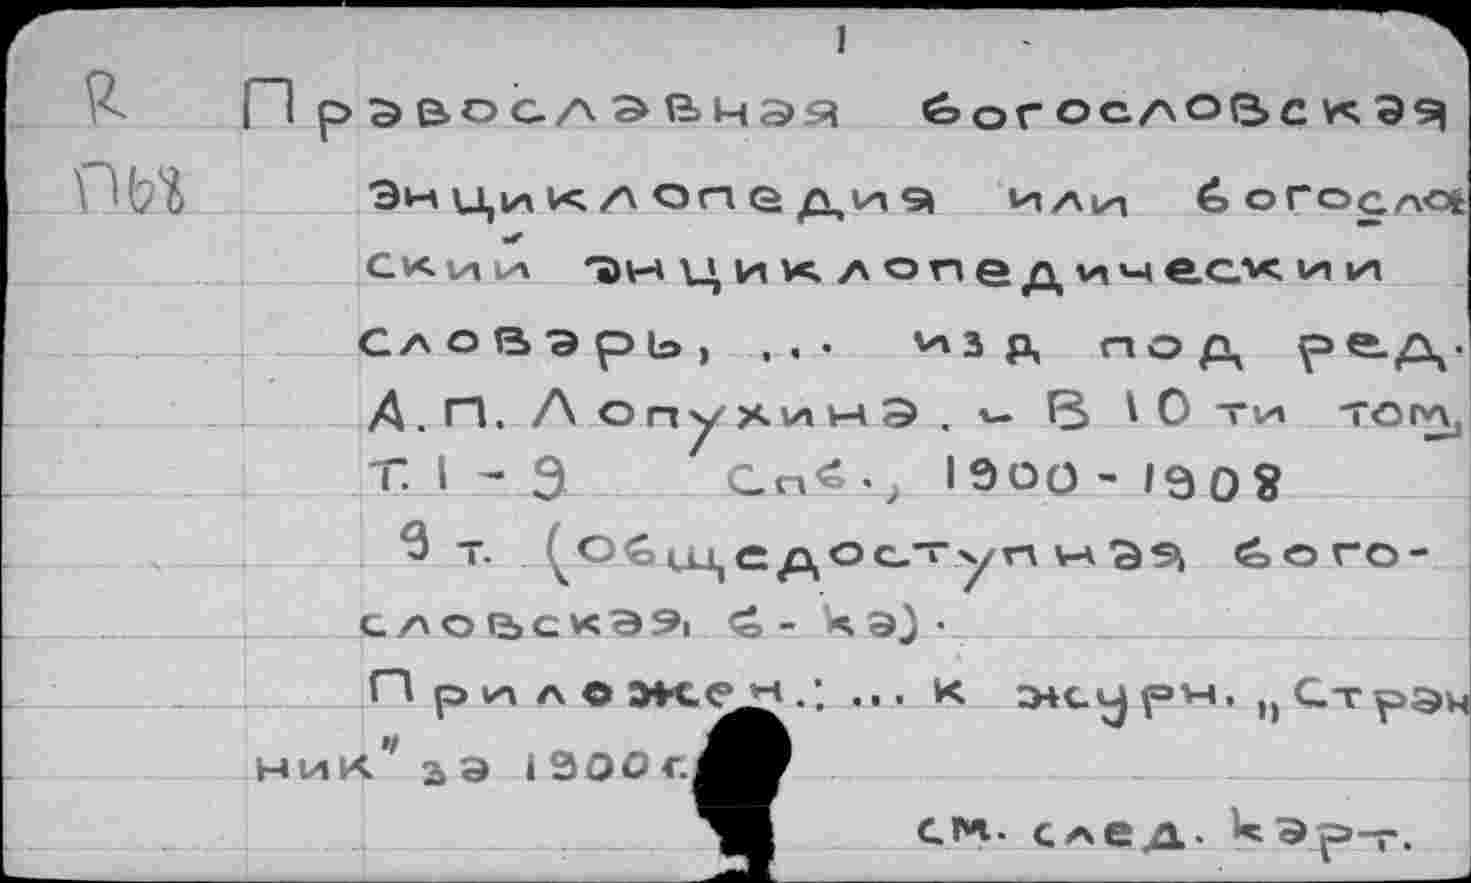 1
R Православная богословская
ПЬЯ энциклопедия или богослов
ский энциклопедическии
словарь, ... изд под ред.
А.П. Лопухина. - В 10 ти том.
Т. 1 - 9 Спб., 1900 - 1908
9 т. (Общедоступная бого-
словская б-ка).
Приложен.: ... к журн. „Стран
ник" за 1900г.
см. след. карт.